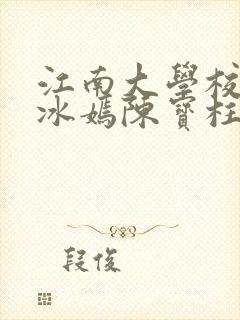 江南大學校
冰嫣陳寶柱
段俊